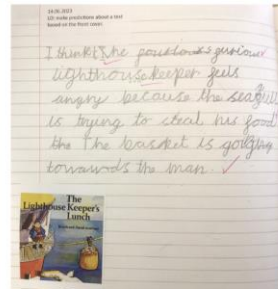 LO: make predictions about a text
based on the front cover.
I think the
lighthouse keeper feels
angry because the seagull
is trying to steal his food
the The basket is
towards the man.
The
Lighthouse Keeper's
Lunch